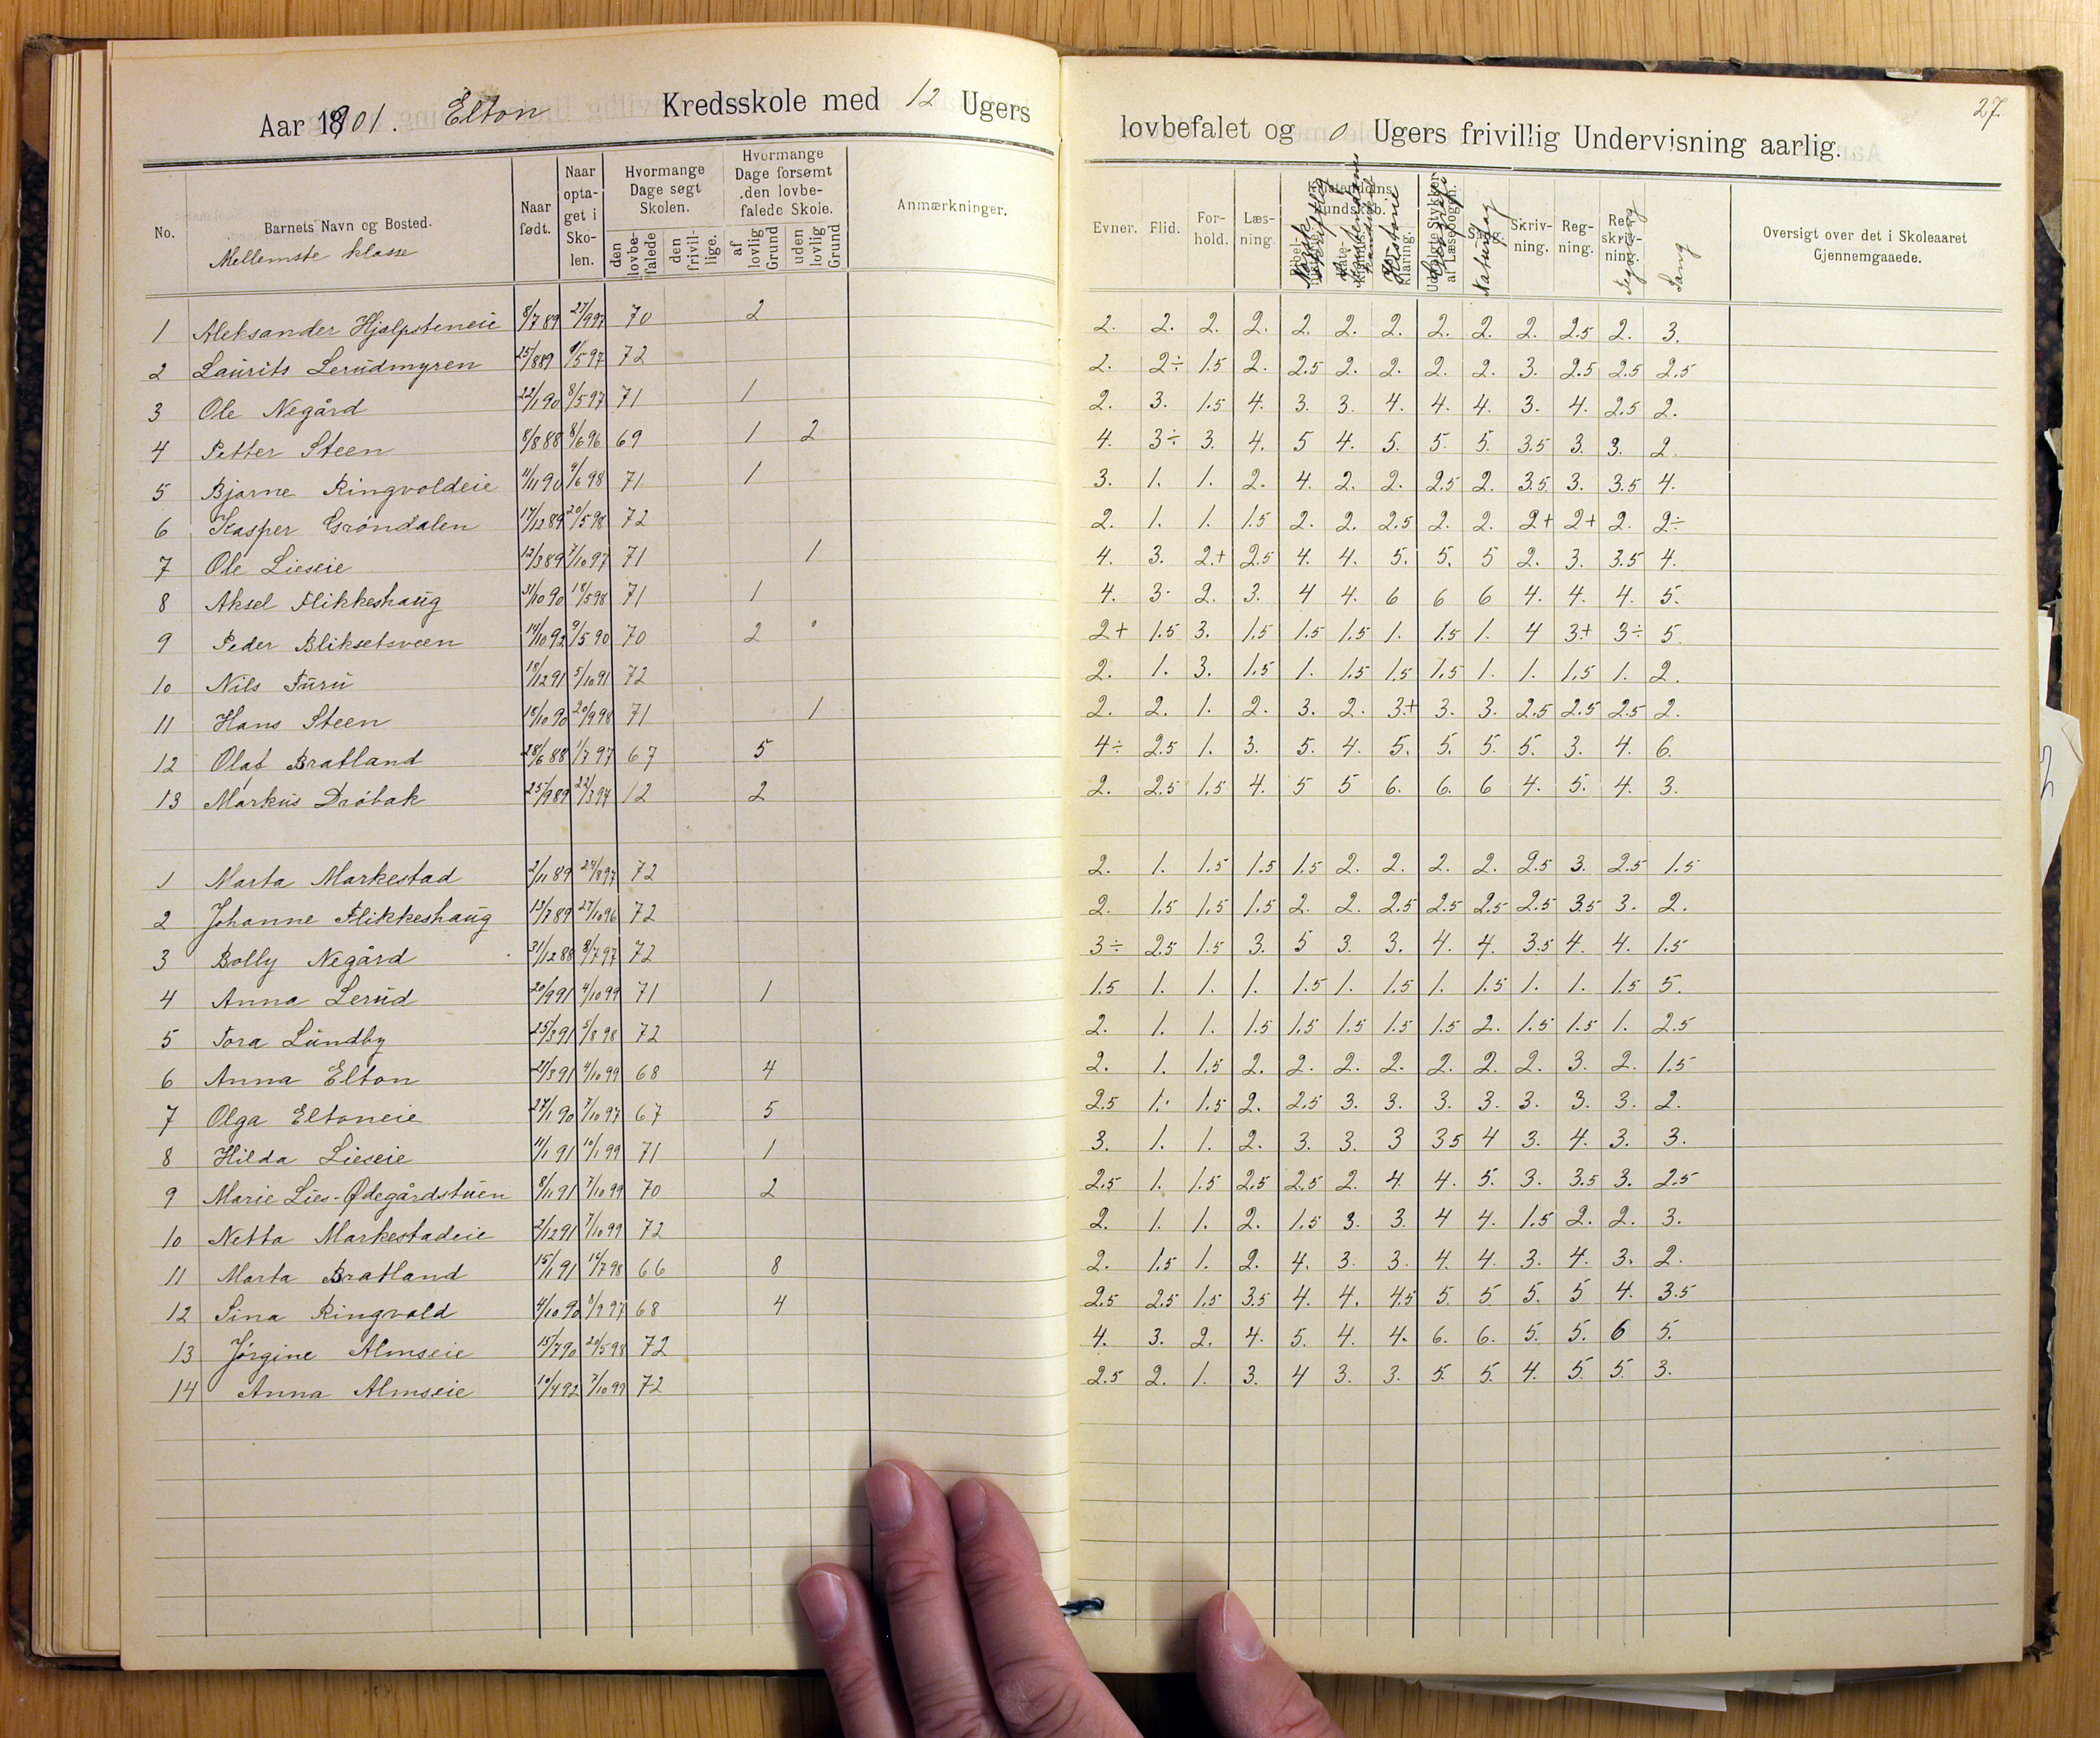 Aar 1901. Elton Kredsskole med 12 Ugers
No. Barnets Navn og Bosted. Naar født. Naar optaget i Skolen. Hvormange Dage søgt Skolen. Hvormange Dage forsømt den lovbefalede Skole. Anmærkninger.
Mellemste klasse
den lovbefalede den frivillige. af lovlig Grund uden lovlig Grund
1 Aleksander Hjelpsteneie 8/7 89 27/9 97 70 2
2 Laurits Lerudmyren 25/8 89 9/5 97 72
3 Ole Negård 22/1 90 8/5 97 71 1
4 Petter Steen 8/8 88 8/6 96 69 1 2
5 Bjarne Ringvoldeie 11/11 90 9/6 98 71 1
6 Kasper Grøndalen 17/12 89 20/5 98 72
7 Ole Lieseie 12/3 89 7/10 97 71 1
8 Aksel Flikkeshaug 31/10 90 18/5 98 71 1
9 Peder Bliksetsveen 14/10 92 9/5 90 70 2
10 Nils Furu 18/12 91 5/10 91 72
11 Hans Steen 18/10 90 20/9 98 71 1
12 Olaf Bratland 28/6 88 1/7 97 67 5
13 Markus Drøbak 25/9 89 22/3 94 12 2
1 Marta Markestad 2/11 89 24/8 97 72
2 Johanne Flikkeshaug 13/7 89 27/10 96 72
3 Bolly Negård 31/12 88 8/7 97 72
4 Anna Lerud 20/9 91 4/10 99 71 1
5 Tora Lundby 25/3 91 5/8 98 72
6 Anna Elton 21/3 91 4/10 99 68 4
7 Olga Eltoneie 27/1 90 7/10 97 67 5
8 Hilda Lieseie 11/1 91 10/1 99 71 1
9 Marie Lies-Ødegårdstuen 8/11 91 7/10 99 70 2
10 Netta Markestadeie 2/12 91 7/10 99 72
11 Marta Bratland 15/1 91 14/7 98 66 8
12 Sina Ringvold 4/10 90 8/9 97 68 4
13 Jørgine Almseie 15/7 90 20/5 98 72
14 Anna Almseie 10/4 92 7/10 99 72
27.
lovbefalet og 0 Ugers frivillig Undervisning aarlig.
Evner. Flid. Forhold. Læsning. Kristendomskundskab. Udvalgte Stykker af Læsebogen. Sang. Skrivning. Regning. Retskrivning. Oversigt over det i Skoleaaret Gjennemgaaede.
Norsk skriftlig Historie Geografi Naturfag Tegning Sang
2. 2. 2. 2. 2. 2. 2. 2. 2. 2. 2.5 2. 3.
2. 2÷ 1.5 2. 2.5 2. 2. 2. 2. 3. 2.5 2.5 2.5
2. 3. 1.5 4. 3. 3. 4. 4. 4. 3. 4. 2.5 2.
4. 3÷ 3. 4. 5 4. 5. 5. 5. 3.5 3. 3. 2.
3. 1. 1. 2. 4. 2. 2. 2.5 2. 3.5 3. 3.5 4.
2. 1. 1. 1.5 2. 2. 2.5 2. 2. 2+ 2+ 2. 2÷
4. 3. 2+ 2.5 4. 4. 5. 5. 5 2. 3. 3.5 4.
4. 3. 2. 3. 4 4. 6 6 6 4. 4. 4. 5.
2+ 1.5 3. 1.5 1.5 1.5 1. 1.5 1. 4 3+ 3÷ 5.
2. 1. 3. 1.5 1. 1.5 1.5 1.5 1. 1. 1.5 1. 2.
2. 2. 1. 2. 3. 2. 3+ 3. 3. 2.5 2.5 2.5 2.
4÷ 2.5 1. 3. 5. 4. 5. 5. 5. 5. 3. 4. 6.
2. 2.5 1.5 4. 5 5 6. 6. 6 4. 5. 4. 3.
2. 1. 1.5 1.5 1.5 2. 2. 2. 2. 2.5 3. 2.5 1.5
2. 1.5 1.5 1.5 2. 2. 2.5 2.5 2.5 2.5 3.5 3. 2.
3÷ 2.5 1.5 3. 5 3. 3. 4. 4. 3.5 4. 4. 1.5
1.5 1. 1. 1. 1.5 1. 1.5 1. 1.5 1. 1. 1.5 5.
2. 1. 1. 1.5 1.5 1.5 1.5 1.5 2. 1.5 1.5 1. 2.5
2. 1. 1.5 2. 2. 2. 2. 2. 2. 2. 3. 2. 1.5
2.5 1. 1.5 2. 2.5 3. 3. 3. 3. 3. 3. 3. 2.
3. 1. 1. 2. 3. 3. 3 3.5 4 3. 4. 3. 3.
2.5 1. 1.5 2.5 2.5 2. 4. 4. 5. 3. 3.5 3. 2.5
2. 1. 1. 2. 1.5 3. 3. 4 4. 1.5 2. 2. 3.
2. 1.5 1. 2. 4. 3. 3. 4. 4. 3. 4. 3. 2.
2.5 2.5 1.5 3.5 4. 4. 4.5 5. 5 5. 5 4. 3.5
4. 3. 2. 4. 5. 4. 4. 6. 6. 5. 5. 6 5.
2.5 2. 1. 3. 4 3. 3. 5. 5. 4. 5. 5. 3.